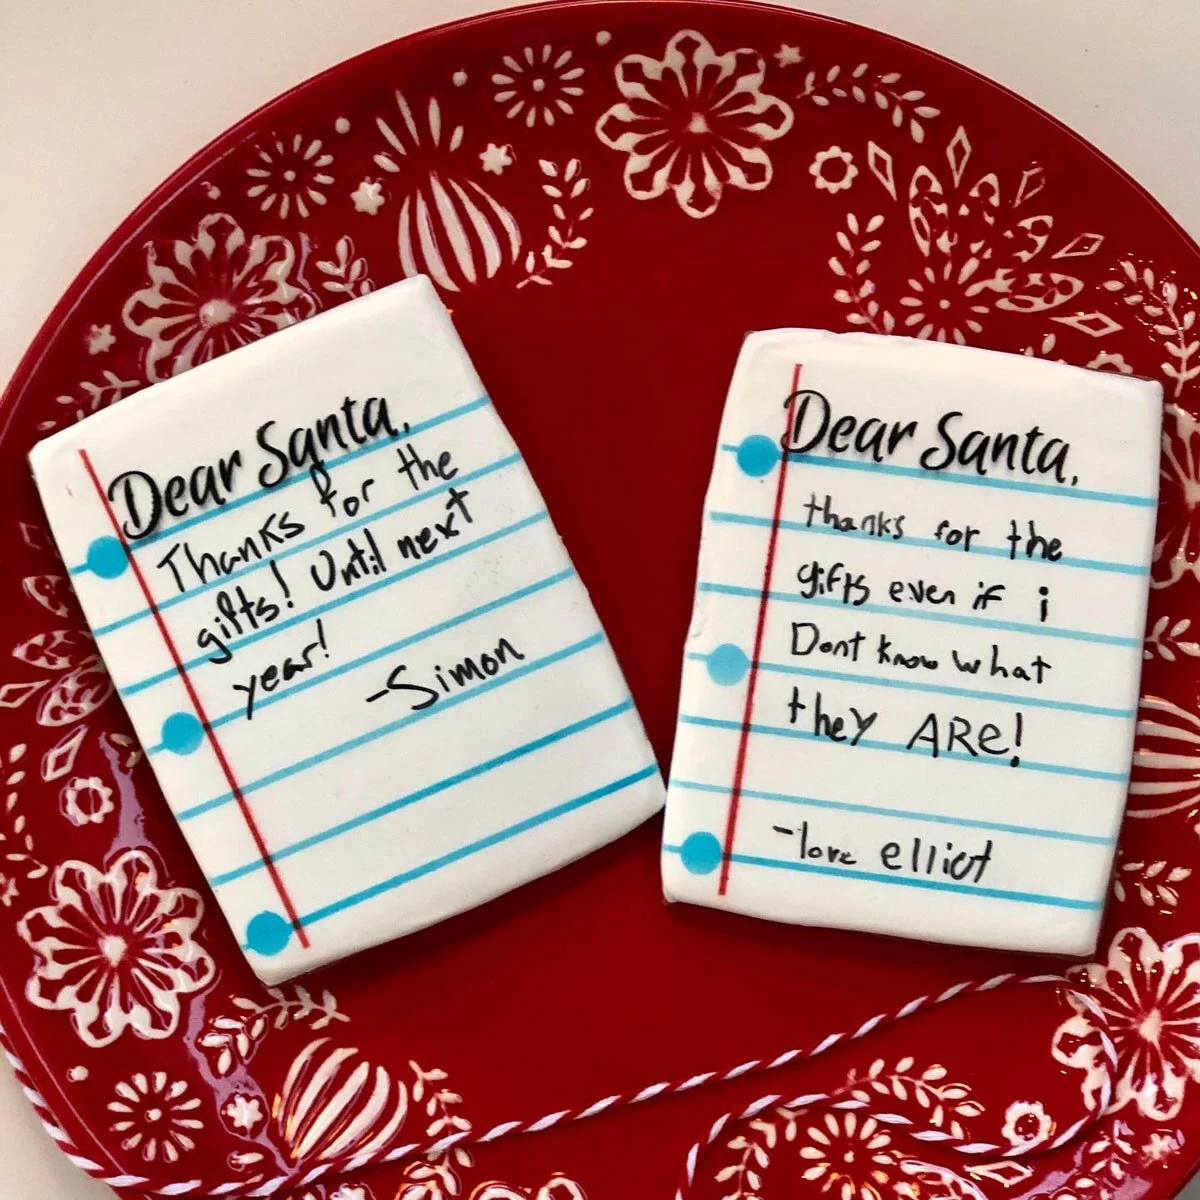 Dear Santa,
Thanks for the
gifts! Until next
year!
-Simon
Dear Santa,
thanks for the
gifts even if i
Dont know what
they ARe!
-love elliot